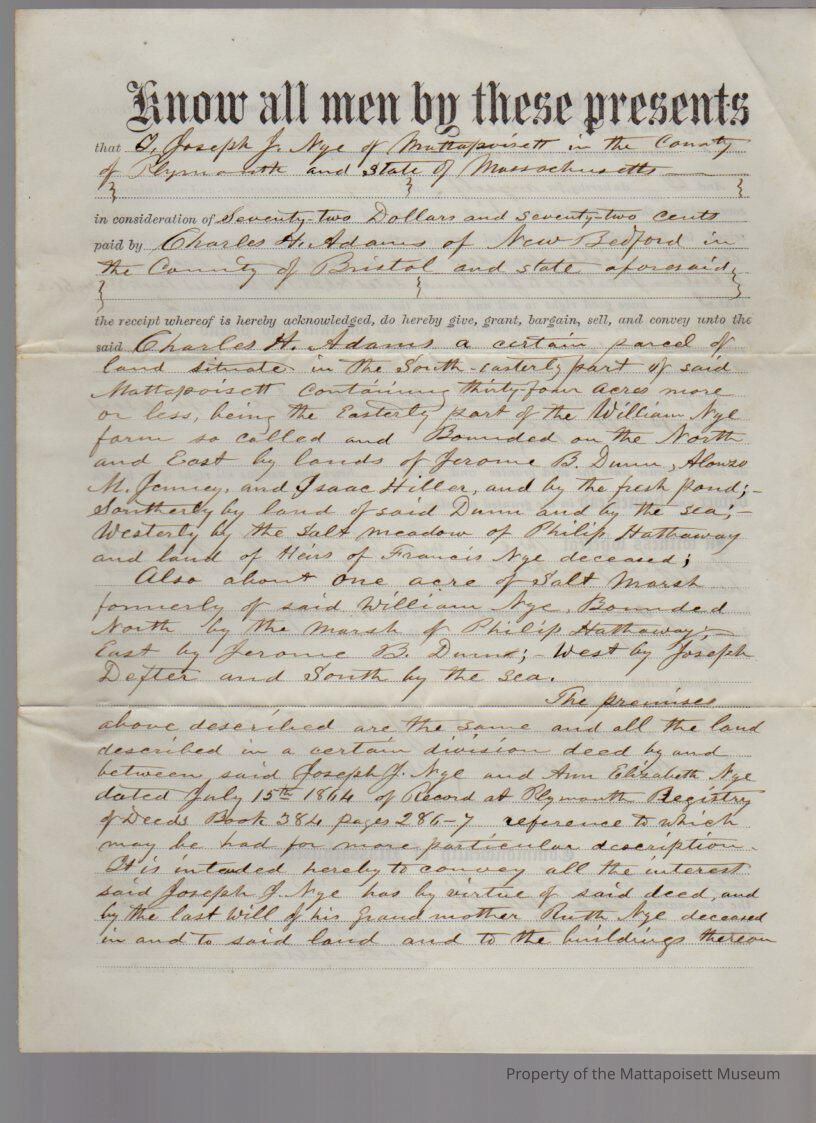 Know all men by these presents
that I, Joseph J. Nye of Mattapoisett in the County
of Plymouth and State of Massachusetts
in consideration of Seventy-two Dollars and seventy-two cents
paid by Charles H. Adams of New Bedford in
the County of Bristol and state aforesaid,
the receipt whereof is hereby acknowledged, do hereby give, grant, bargain, sell, and convey unto the
said Charles H. Adams a certain parcel of
land situate in the South-easterly part of said
Mattapoisett containing thirty-four acres more
or less, being the Easterly part of the William Nye
farm so called and Bounded on the North
and East by lands of Jerome B. Dunn, Alonzo
M. Jenney, and Isaac Hiller, and by the fresh pond;-
Southerly by land of said Dunn and by the sea;-
Westerly by the salt meadow of Philip Hathaway
and land of Heirs of Francis Nye deceased;
Also about one acre of Salt Marsh
formerly of said William Nye, Bounded
North by the marsh of Philip Hathaway;-
East by Jerome B. Dunn;- West by Joseph
Dexter and South by the sea.
The premises
above described are the same and all the land
described in a certain division deed by and
between said Joseph J. Nye and Ann Elizabeth Nye
dated July 15th 1864 of Record at Plymouth Registry
of Deeds Book 384 pages 286-7 reference to which
may be had for more particular description.
It is intended hereby to convey all the interest
said Joseph J. Nye has by virtue of said deed, and
by the last will of his Grandmother Ruth Nye deceased
in and to said land and to the buildings thereon
Property of the Mattapoisett Museum